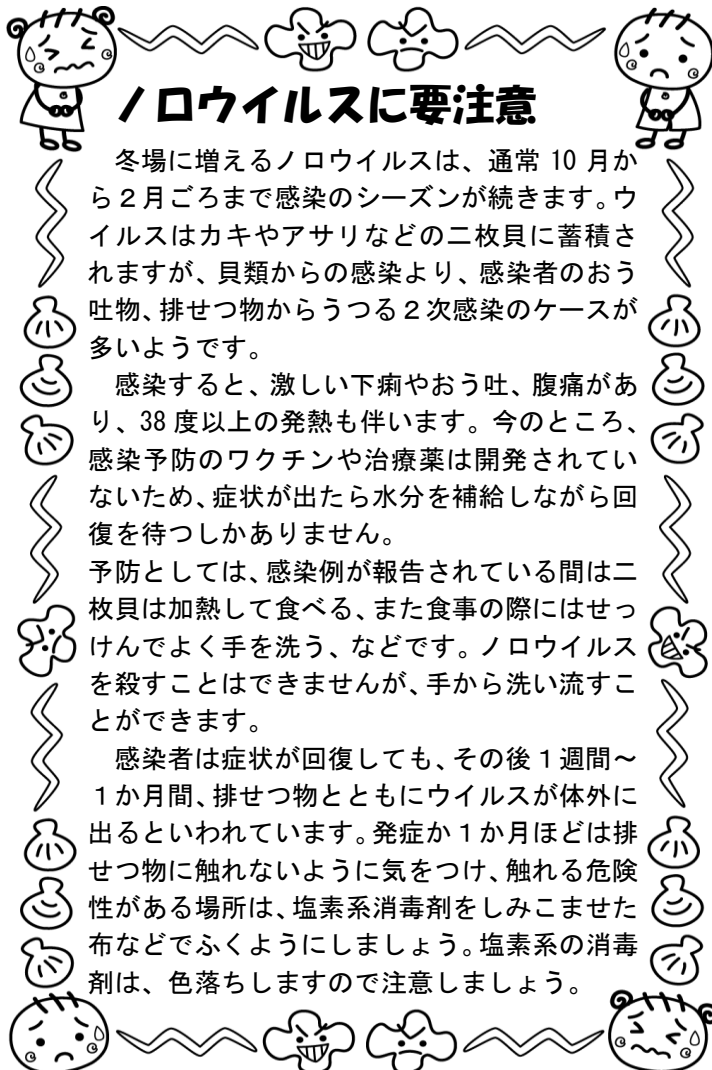 ノロウイルスに要注意
　冬場に増えるノロウイルスは、通常 10 月か
ら２月ごろまで感染のシーズンが続きます。ウ
イルスはカキやアサリなどの二枚貝に蓄積さ
れますが、貝類からの感染より、感染者のおう
吐物、排せつ物からうつる２次感染のケースが
多いようです。
　感染すると、激しい下痢やおう吐、腹痛があ
り、38 度以上の発熱も伴います。今のところ、
感染予防のワクチンや治療薬は開発されてい
ないため、症状が出たら水分を補給しながら回
復を待つしかありません。
予防としては、感染例が報告されている間は二
枚貝は加熱して食べる、また食事の際にはせっ
けんでよく手を洗う、などです。ノロウイルス
を殺すことはできませんが、手から洗い流すこ
とができます。
　感染者は症状が回復しても、その後１週間～
１か月間、排せつ物とともにウイルスが体外に
出るといわれています。発症か１か月ほどは排
せつ物に触れないように気をつけ、触れる危険
性がある場所は、塩素系消毒剤をしみこませた
布などでふくようにしましょう。塩素系の消毒
剤は、色落ちしますので注意しましょう。